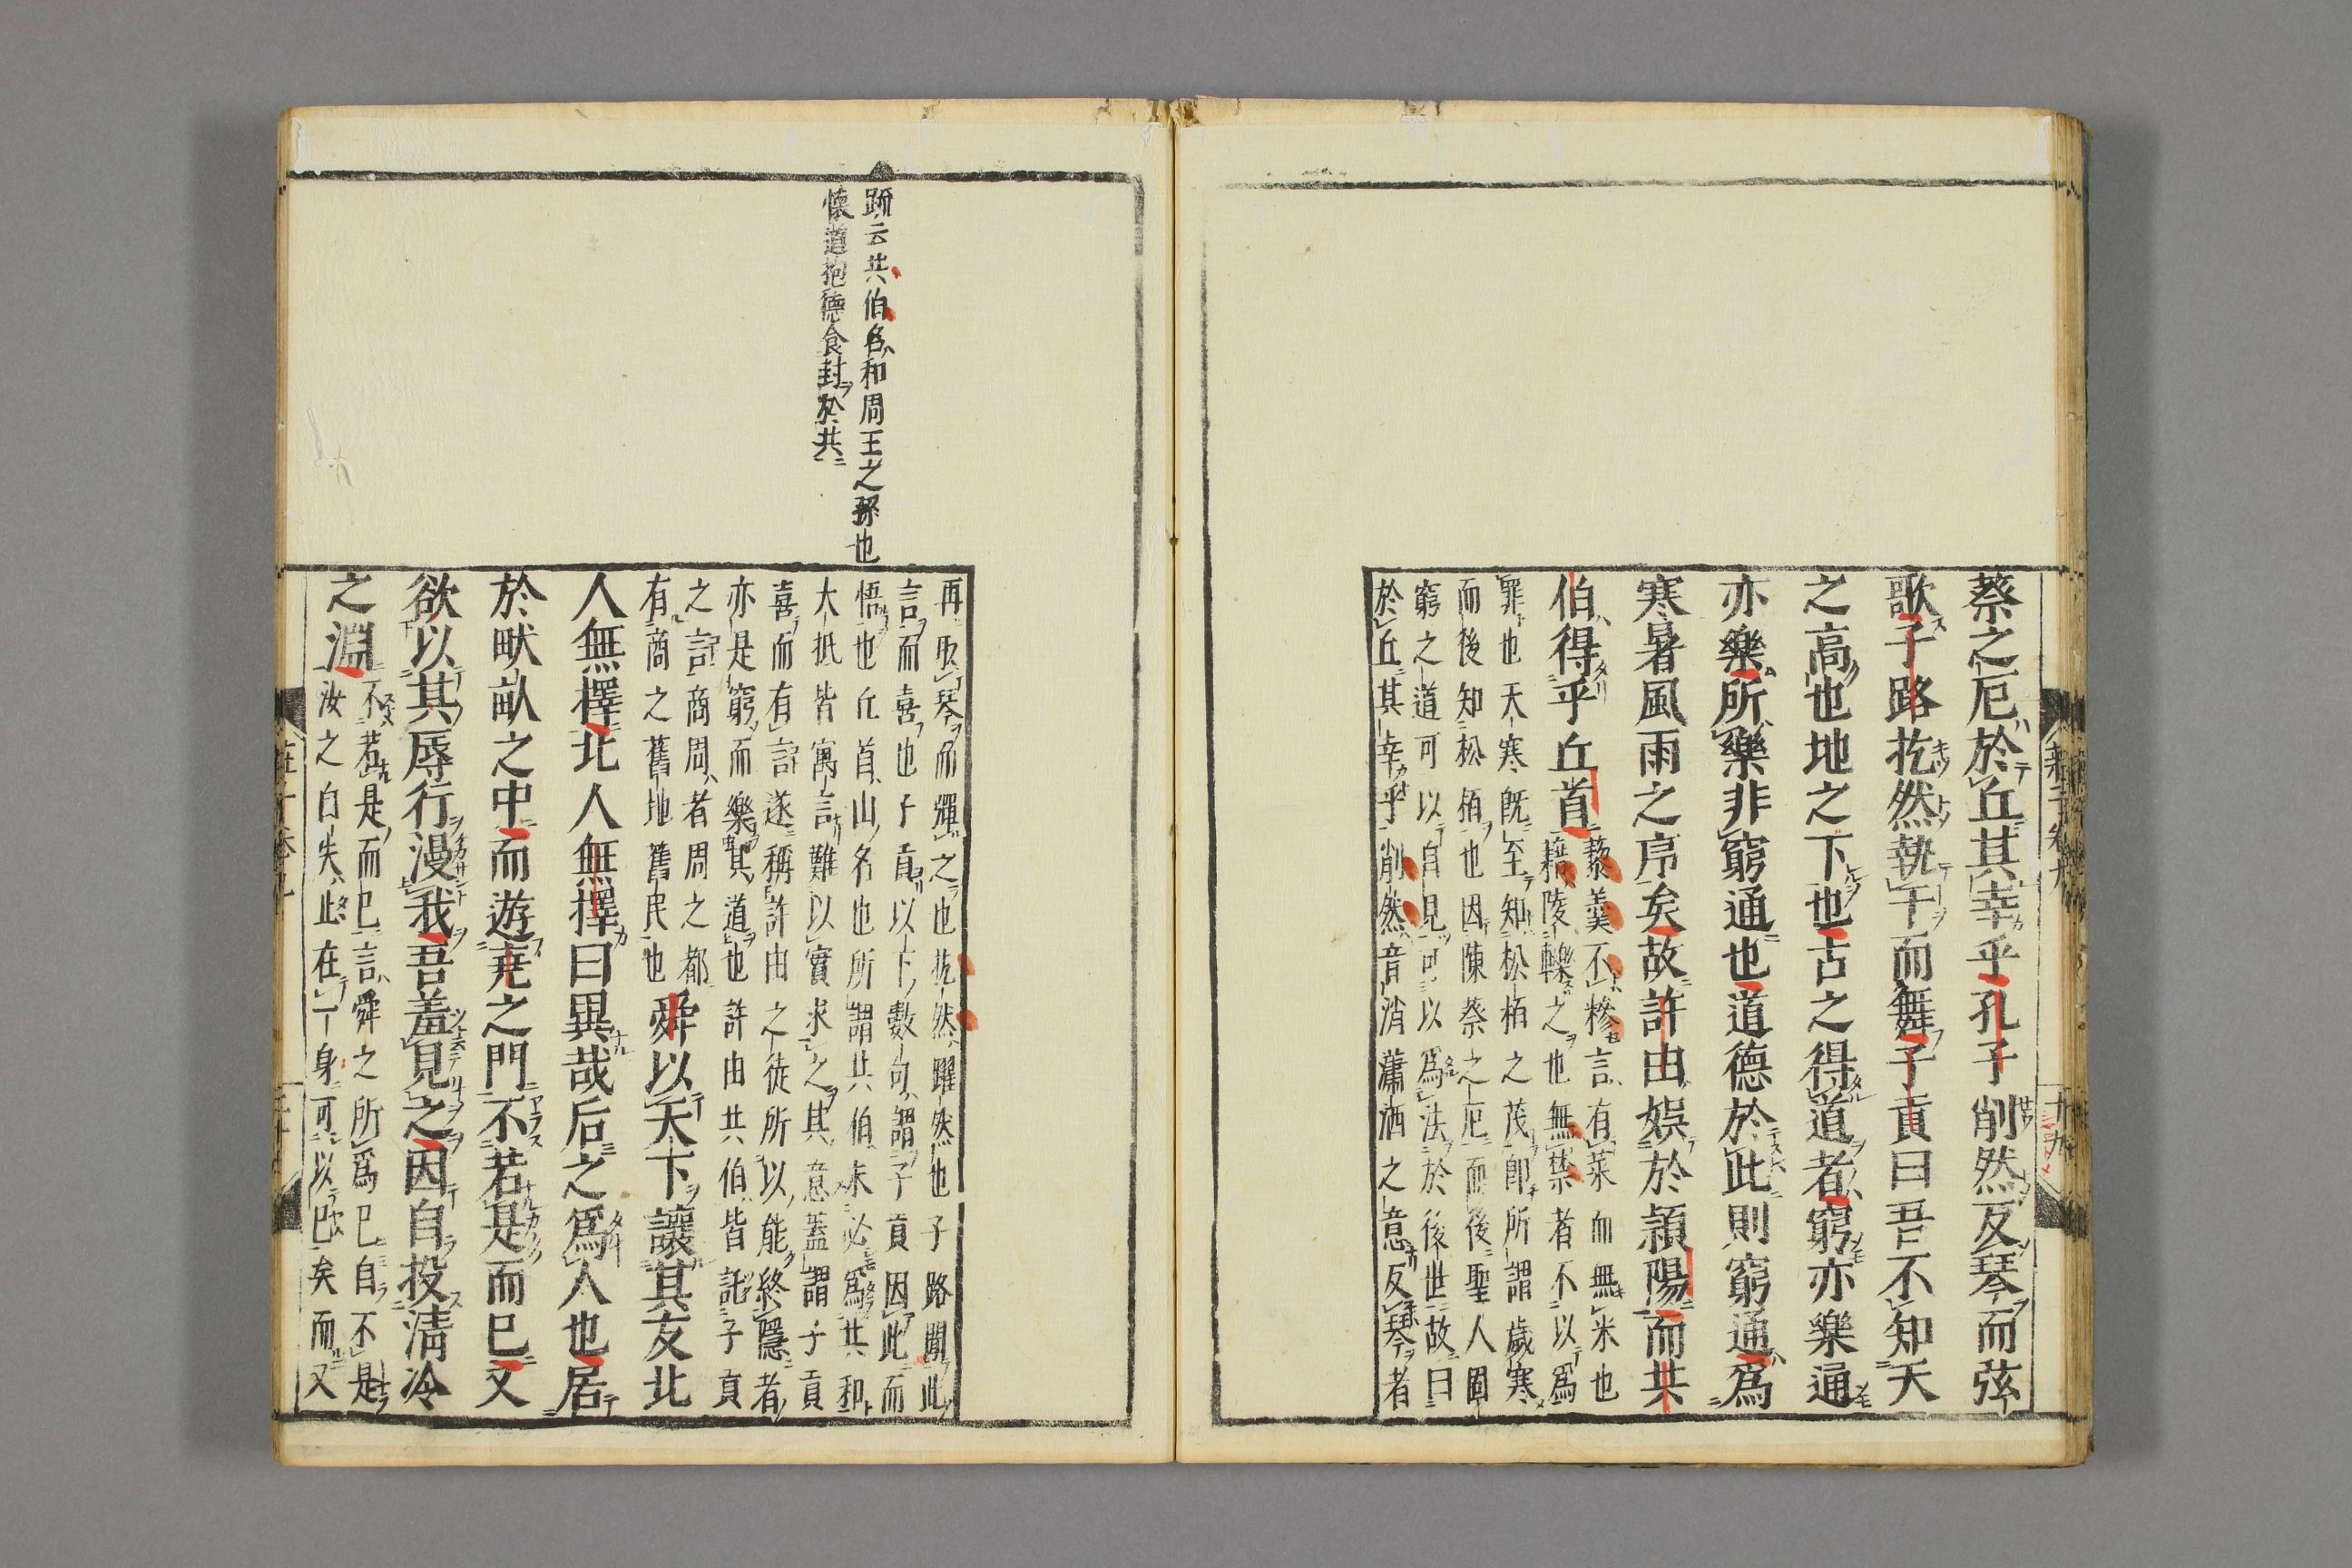 蔡之厄於丘其幸乎孔子削然反琴而弦
歌子路扢然執干而舞子貢曰吾不知天
之高也地之下也古之得道者窮亦樂通
亦樂所樂非窮通也道德於此則窮通爲
寒暑風雨之序矣故許由娯於頴陽而共
伯得乎丘首
藜羹不糝言有菜而無米也
藉陵轢之也無禁者不以爲
罪也天寒既至知松栢之茂即所謂歲寒
而後知松栢也因陳蔡之厄而後聖人固
窮之道可以自見可以爲法於後世故曰
於丘其幸乎削然音消瀟洒之意反琴者
疏云共伯名和周王之孫也
懐道抱德食封於共
再取琴而彈之也扢然躍然也子路聞此
言而喜也子貢以下數句謂子貢因此而
悟也丘首山名也所謂共伯未必爲共和
大抵皆寓言難以實求之其意蓋謂子貢
喜而有許遂稱許由之徒所以能終隱者
亦是窮而樂其道也許由共伯皆託子貢
之言商周者周之都
有商之舊地舊民也
舜以天下讓其友北
人無擇北人無擇曰異哉后之爲人也居
於畎畝之中而遊堯之門不若是而已又
欲以其辱行漫我吾羞見之因自投淸冷
之淵
不若是而已言舜之所爲已自不是
汝之自失止在一身可以已矣而又